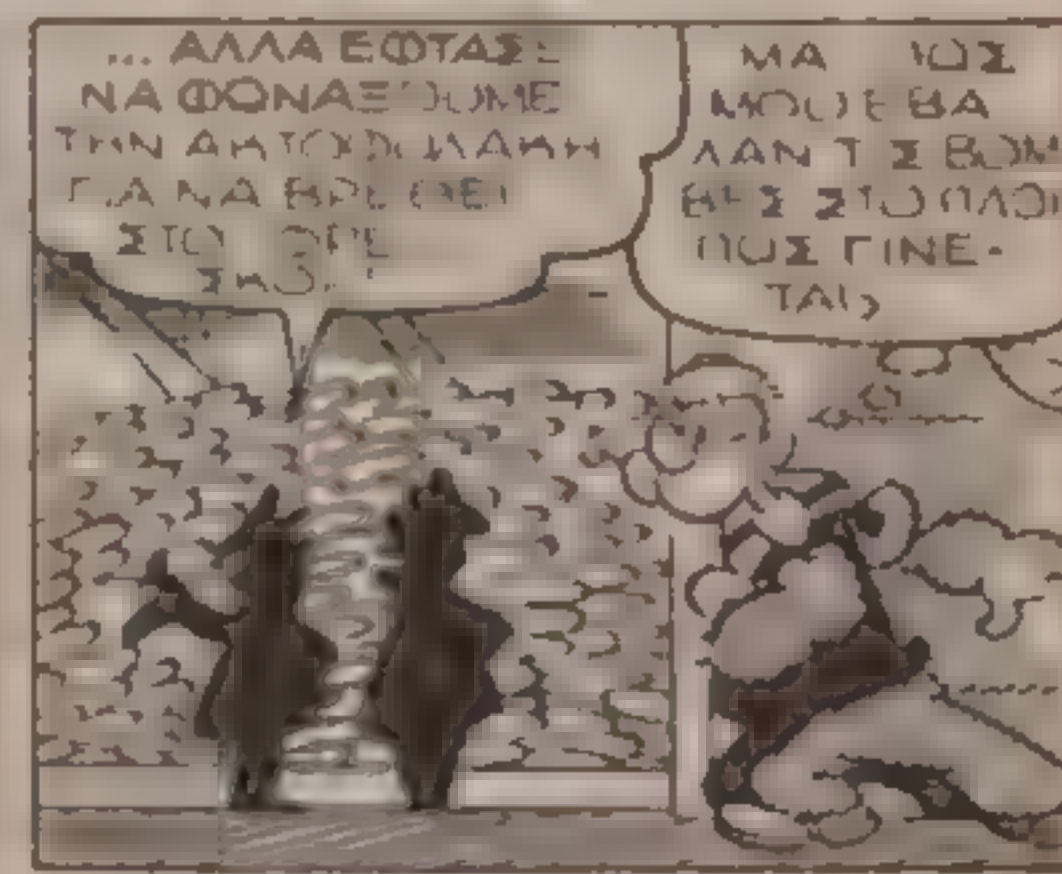 ... ΑΛΛΑ ΕΦΤΑΣΕ
ΝΑ ΦΩΝΑΞΟΥΜΕ
ΤΗΝ ΑΚΤΟΦΥΛΑΚΗ
ΓΙΑ ΝΑ ΒΡΕΘΕΙ
ΣΤΟ
ΜΑ ΠΩΣ
ΜΟΥ ΕΒΑ
ΛΑΝ ΤΙΣ ΒΟΜ
ΒΕΣ ΣΤΟ ΠΛΟΙ
ΠΩΣ ΓΙΝΕ-
ΤΑΙ;